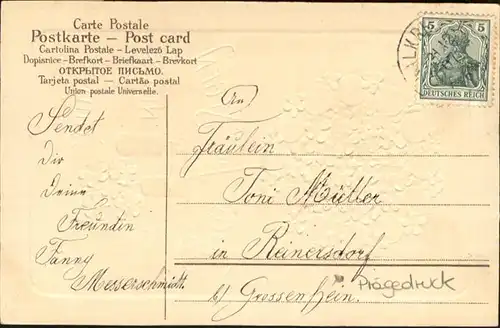 Carte Postale
Postkarte – Post card
Cartolina Postale – Levelező Lap
Dopisnice – Brefkort – Briefkaart – Brevkort
ОТКРЫТОЕ ПИСЬМО.
Tarjeta postal – Cartão postal
Union postale Universelle.
5 5
DEUTSCHES REICH
Sendet
Dir
Deine
Freundin
Fanny
Messerschmidt.
An
Fräulein
Toni Müller
in Reinersdorf
b/ Grossenhein.
Prägedruck